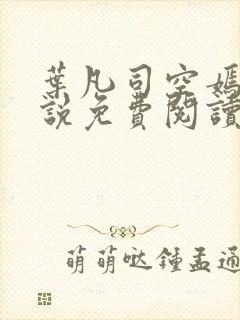 葉凡司空嫣
說免費閱讀
萌萌哒鍾孟通